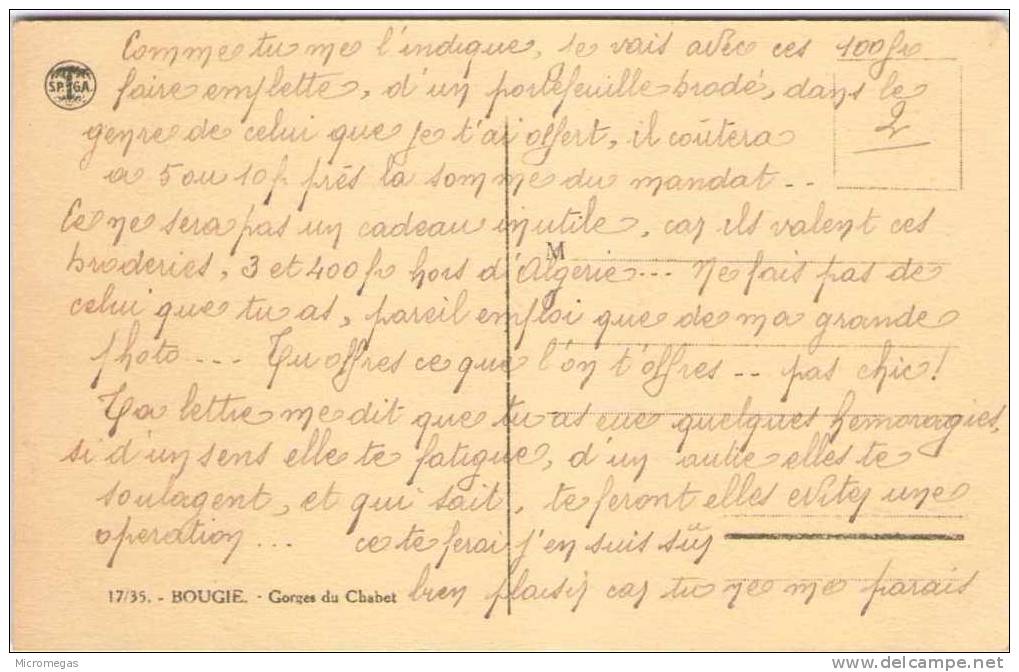 Comme tu me l'indique, je vais avec ces 100fr
S.P.GA.
faire emplette, d'un portefeuille brodé, dans le
2
genre de celui que je t'ai offert, il coûtera
a 5 ou 10fr près la somme du mandat..
Ce ne sera pas un cadeau inutile, car ils valent ces
M
broderies, 3 et 400fr hors d'Algerie... Ne fais pas de
celui que tu as, pareil emploi que de ma grande
photo... Tu offres ce que l'on t'offres.. pas chic!
Ta lettre me dit que tu as eue quelques hemoragies,
si d'un sens elle te fatigue, d'un autre elles te
soulagent, et qui sait, te feront elles eviter une
operation... ce te ferai j'en suis sûr
17/35. - BOUGIE. - Gorges du Chabet
bien plaisir car tu ne me parais
Micromegas
delcampe.net